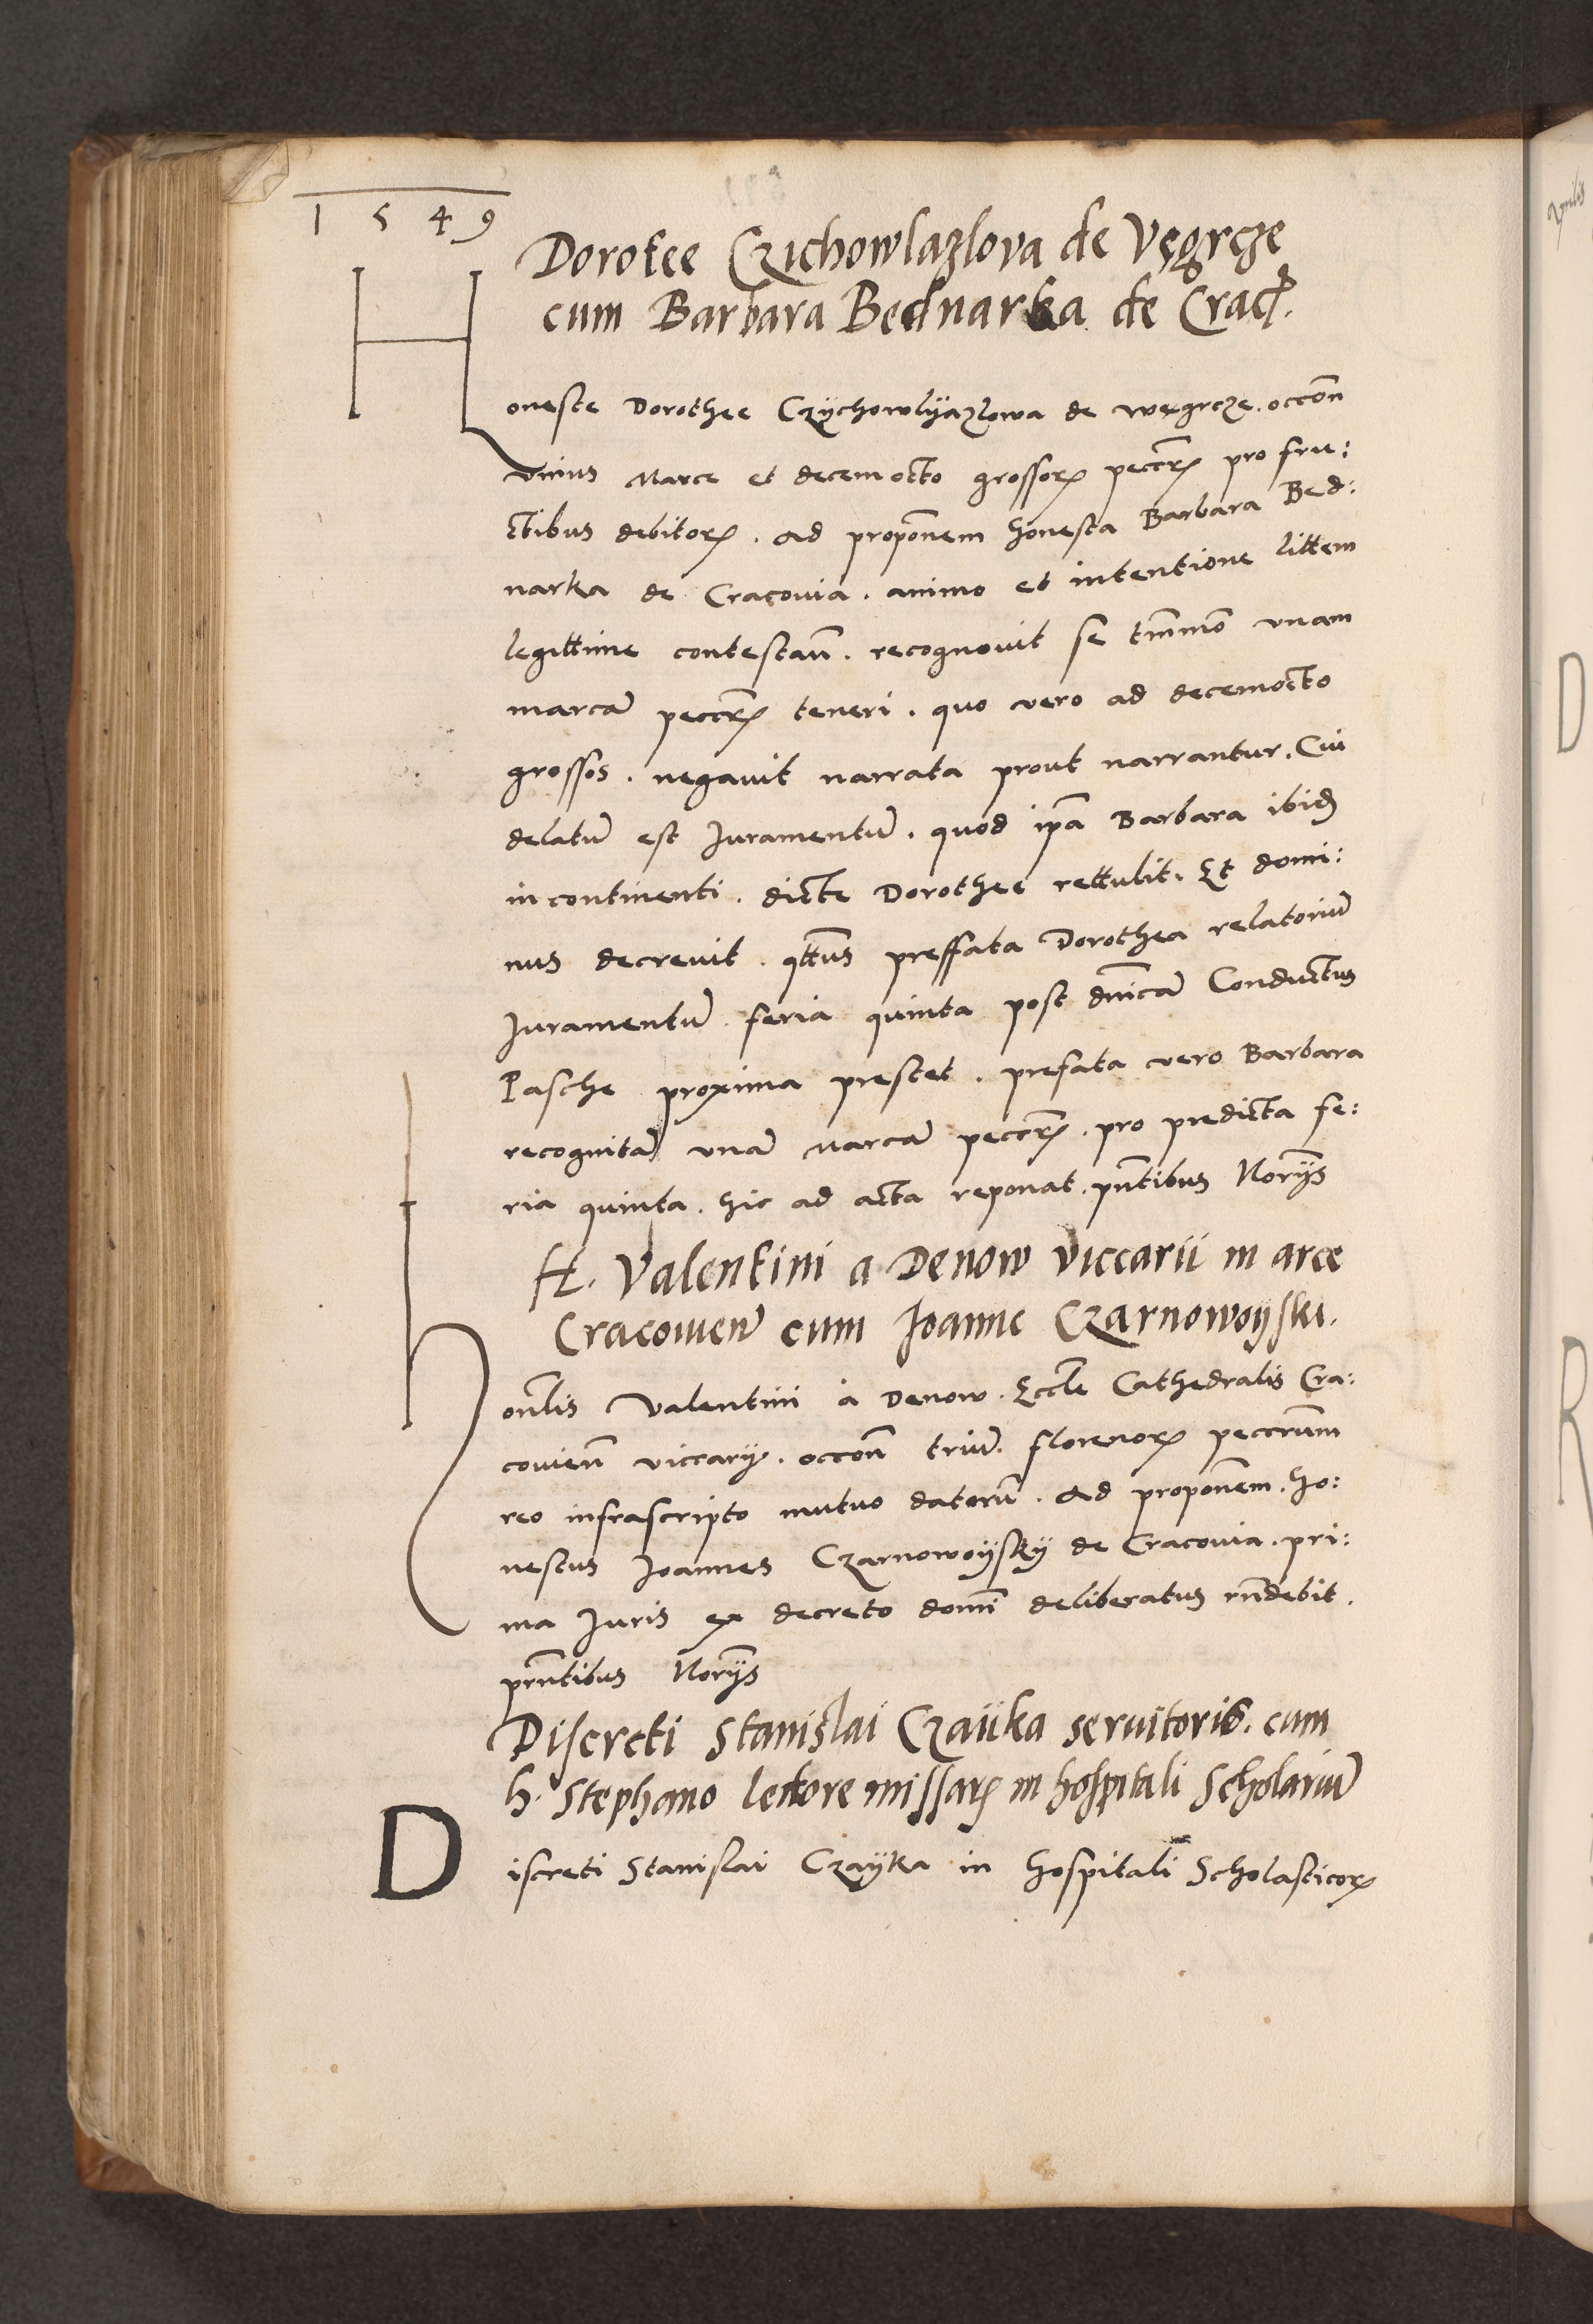 1549
Dorotee Czichowlazlova de Vęgrcze
cum Barbara Bednarka de Crac.
Honeste Dorothee Czychowlyazlowa de węgrcze. occon̄
vnius Marce et decemocto grossoꝝ peccr̄ꝝ pro fru:
ctibus debitoꝝ. Ad propon̄em honesta Barbara Bed:
narka de Cracouia. animo et intentione littem
legittime contestan̄. recognouit se tm̄mo vnam
marcā peccr̄ꝝ teneri. quo vero ad decemocto
grossos. negauit narrata prout narrantur. Cui
delatū est Iuramentū. quod ip̄a Barbara ibid
incontinenti. dicte Dorothee rettulit. Et domi:
nus decreuit. qt̄tus preffata Dorothea relatoriū
Iuramentū feria quinta post dn̄icā Conductus
Pasche proxima prestet. prefata vero Barbara
recognitā vnā marcā peccr̄ꝝ. pro predicta fe:
ria quinta. hic ad acta reponat. pn̄tibus Norijs
H. Valentini a Denow viccarii in arce
Cracouien̄ cum Joanne Czarnowoyski.
Hon̄lis Valentini à Denow. Eccl̄e Cathedralis Cra:
couien̄ viccarij. occon̄ triū florenoꝝ peccrum̄
reo infrascripto mutuo datorū. Ad propon̄em. ho:
nestus Joannes Czarnowoijskij de Cracouia. pri:
ma Iuris ex decreto domī deliberatus rn̄debit.
prn̄tibus Norijs
Discreti Stanislai Czaiika seruitoris. cum
h. Stephano lectore missaꝝ in hospitali Scholariū
Discreti Stanislai Czaijka in hospitali Scholasticoꝝ